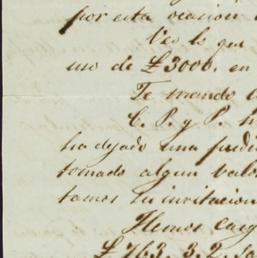 por esta ocasion
Veo lo que
uso de £3000. en
Te mando
C. P. y P.
ha dejado una
tomado algun valo
tamos tu invitacion
Hemos carg
£763. 3. 2.